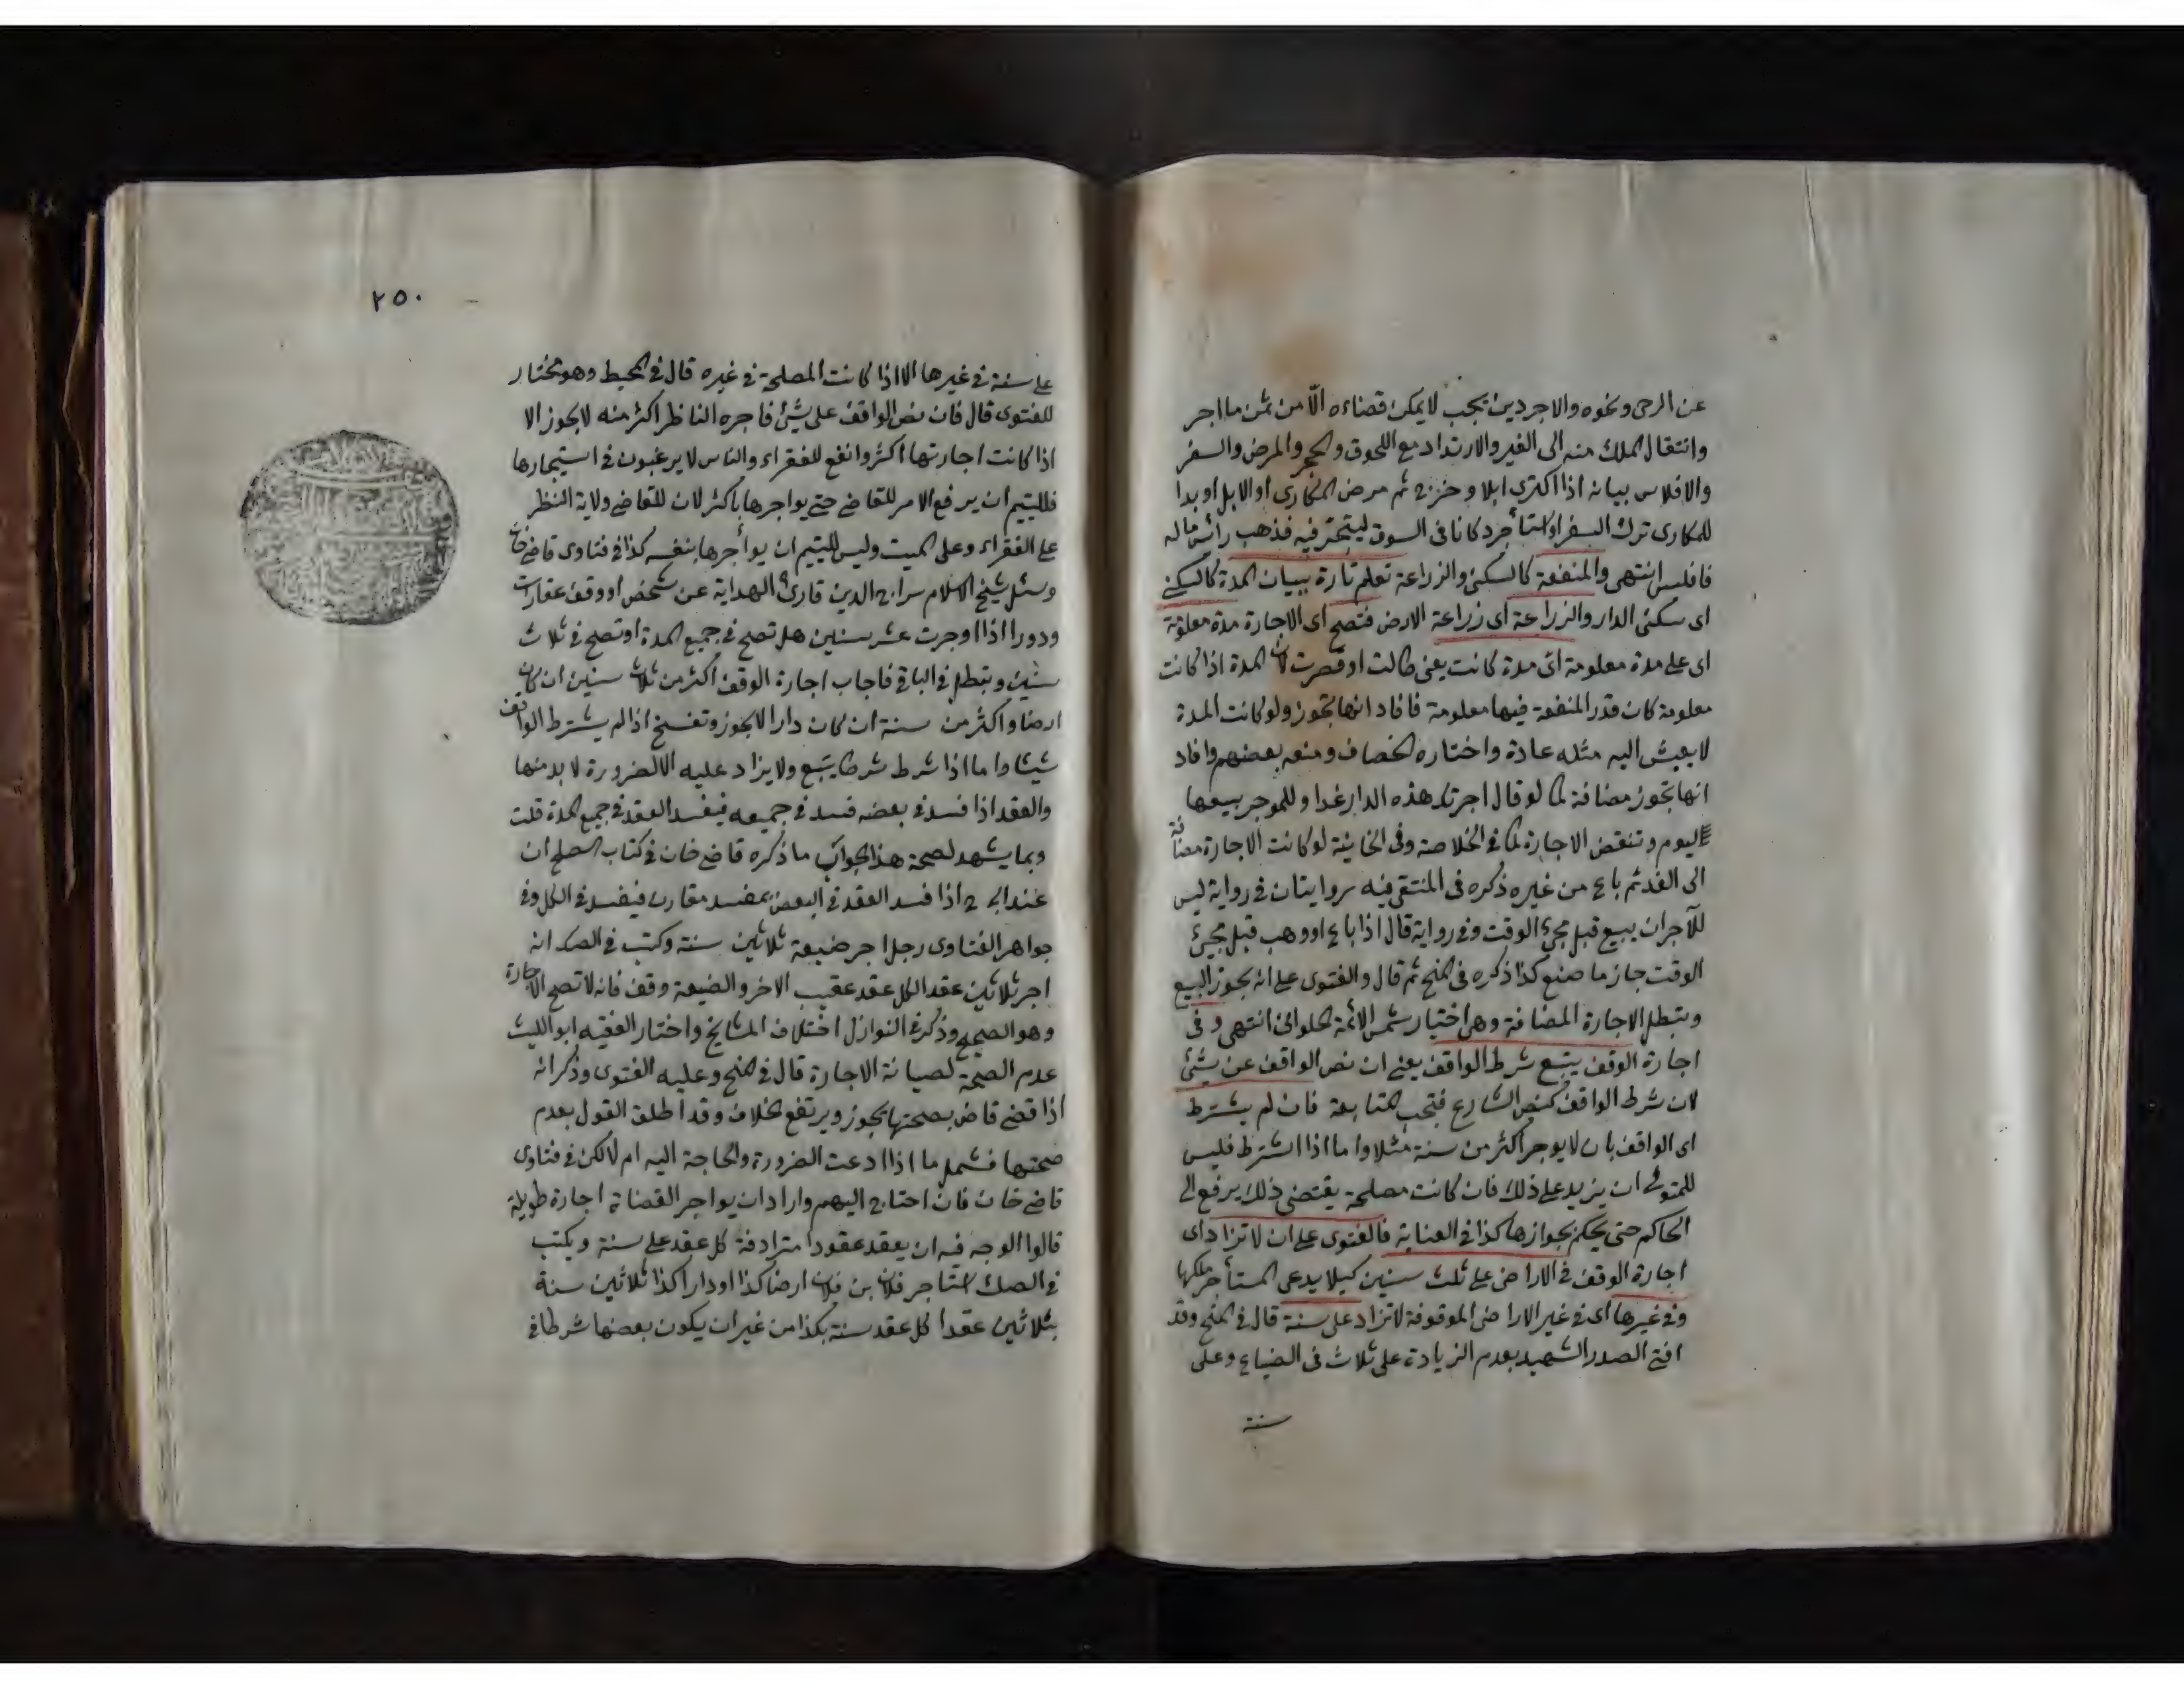 عن الرحى ونحوه والاجر دين يجب لا يمكن قضاءه الّا من ثمن ما اجر
وانتقال الملك منه الى الغير والارتداد مع اللحوق والحجر والمرض والسفر
والافلاس بيانه اذا اكترى ابلا وخرج ثم مرض المكارى او الابل او بدا
للمكارى ترك السفر او استأجر دكانا فى السوق ليتجر فيه فذهب رأس ماله
فافلس انتهى والمنفعة كالسكنى والزراعة تعلم تارة ببيان المدة كالسكنى
اى سكنى الدار والزراعة اى زراعة الارض فتصح اى الاجارة مدة معلومة
اى على مدة معلومة اى مدة كانت يعنى طالت او قصرت لان المدة اذا كانت
معلومة كان قدر المنفعة فيها معلومة فافاد انها تجوز ولو كانت المدة
لا يعيش اليه مثله عادة واختاره الخصاف ومنعه بعضهم وافاد
انها تجوز مضافة كما لو قال اجرتك هذه الدار غدا وللموجر بيعها
اليوم وتنقض الاجارة كما فى الخلاصة وفى الخانية لو كانت الاجارة مضافة
الى الغد ثم باع من غيره ذكره فى المنتقى فيه روايتان فى رواية ليس
للآجر ان يبيع قبل مجئ الوقت وفى رواية قال اذا باع او وهب قبل مجئ
الوقت جاز ما صنع كذا ذكره فى المنح ثم قال والفتوى على انه يجوز البيع
وتبطل الاجارة المضافة وهى اختيار شمس الائمة الحلوانى انتهى وفى
اجارة الوقف يتبع شرط الواقف يعنى ان نص الواقف عن شئ
لان شرط الواقف كنص الشارع فتجب المتابعة فان لم يشترط
اى الواقف بان لا يوجر اكثر من سنة مثلا واما اذا اشترط فليس
للمتولى ان يزيد على ذلك فان كانت مصلحة يقتضى ذلك يرفع الى
الحاكم حتى يحكم بجوازها كذا فى العناية فالفتوى على ان لا تزاد اى
اجارة الوقف فى الاراضى على ثلث سنين كيلا يدعى المستأجر ملكها
وفى غيرها اى فى غير الاراضى الموقوفة لا تزاد على سنة قال فى المنح وقد
افتى الصدر الشهيد بعدم الزيادة على ثلاث فى الضياع وعلى
سنة
٢٥٠
على سنة فى غيرها الا اذا كانت المصلحة فى غيره قال فى المحيط وهو مختار
للفتوى قال فان نص الواقف على شئ فاجره الناظر اكثر منه لا يجوز الا
اذا كانت اجارتها اكثر وانفع للفقراء والناس لا يرغبون فى استيجارها
فللقيم ان يرفع الامر للقاضى حتى يواجرها باكثر لان للقاضى ولاية النظر
على الفقراء وعلى الميت وليس للقيم ان يوأجرها بنفسه كذا فى فتاوى قاضى خان
وسئل شيخ الاسلام سراج الدين قارئ الهداية عن شخص او وقف عقارات
ودورا اذا اوجرت عشر سنين هل تصح فى جميع المدة او تصح فى ثلاث
سنين وتبطل فى الباقى فاجاب اجارة الوقف اكثر من ثلاث سنين ان كان
ارضا واكثر من سنة ان كان دارا لا يجوز وتفسخ اذا لم يشترط الواقف
شيئا واما اذا شرط شرطا يتبع ولا يزاد عليه الا لضرورة لا بد منها
والعقد اذا فسد فى بعضه فسد فى جميعه فيفسد العقد فى جميع المدة قلت
ومما يشهد لصحة هذا الجواب ما ذكره قاضى خان فى كتاب الصلح ان
عند ابى ح اذا فسد العقد فى البعض بمفسد مقارن فيفسد فى الكل وفى
جواهر الفتاوى رجل اجر ضيعة ثلاثين سنة وكتب فى الصك انه
اجر ثلاثين عقدا كل عقد عقيب الاخر والضيعة وقف فانه لا تصح الاجارة
وهو الصحيح وذكر فى النوازل اختلاف المشايخ واختار الفقيه ابو الليث
عدم الصحة لصيانة الاجارة قال فى المنح وعليه الفتوى وذكر انه
اذا قضى قاض بصحتها يجوز ويرتفع الخلاف وقد اطلق القول بعدم
صحتها فشمل ما اذا ادعت الضرورة والحاجة اليه ام لا لكن فى فتاوى
قاضى خان فان احتاج اليهم وارادان يواجر القضاة اجارة طويلة
قالوا الوجه فيه ان يعقد عقودا مترادفة كل عقد على سنة ويكتب
فى الصك استاجر فلان بن فلان ارضا كذا او دارا كذا ثلاثين سنة
بثلاثين عقدا كل عقد سنة بكذا من غير ان يكون بعضها شرطا فى